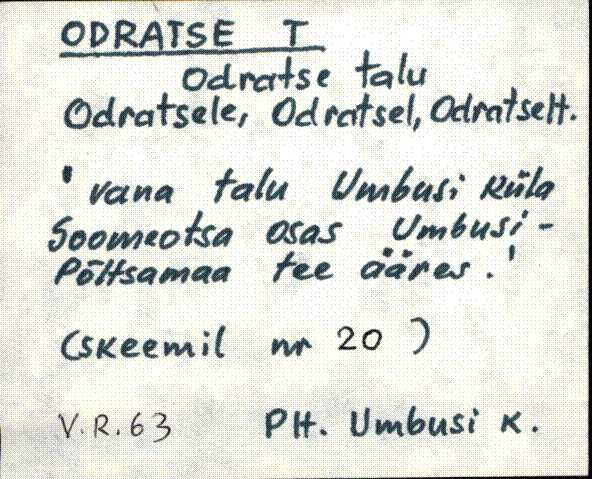 ODRATSE T
Odratse talu
Odratsele, Odratsel, Odratselt.
'vana talu Umbusi küla
Soomeotsa osas Umbusi-
Põltsamaa tee ääres.'
(skeemil nr 20)
V.R.63 Plt. Umbusi k.